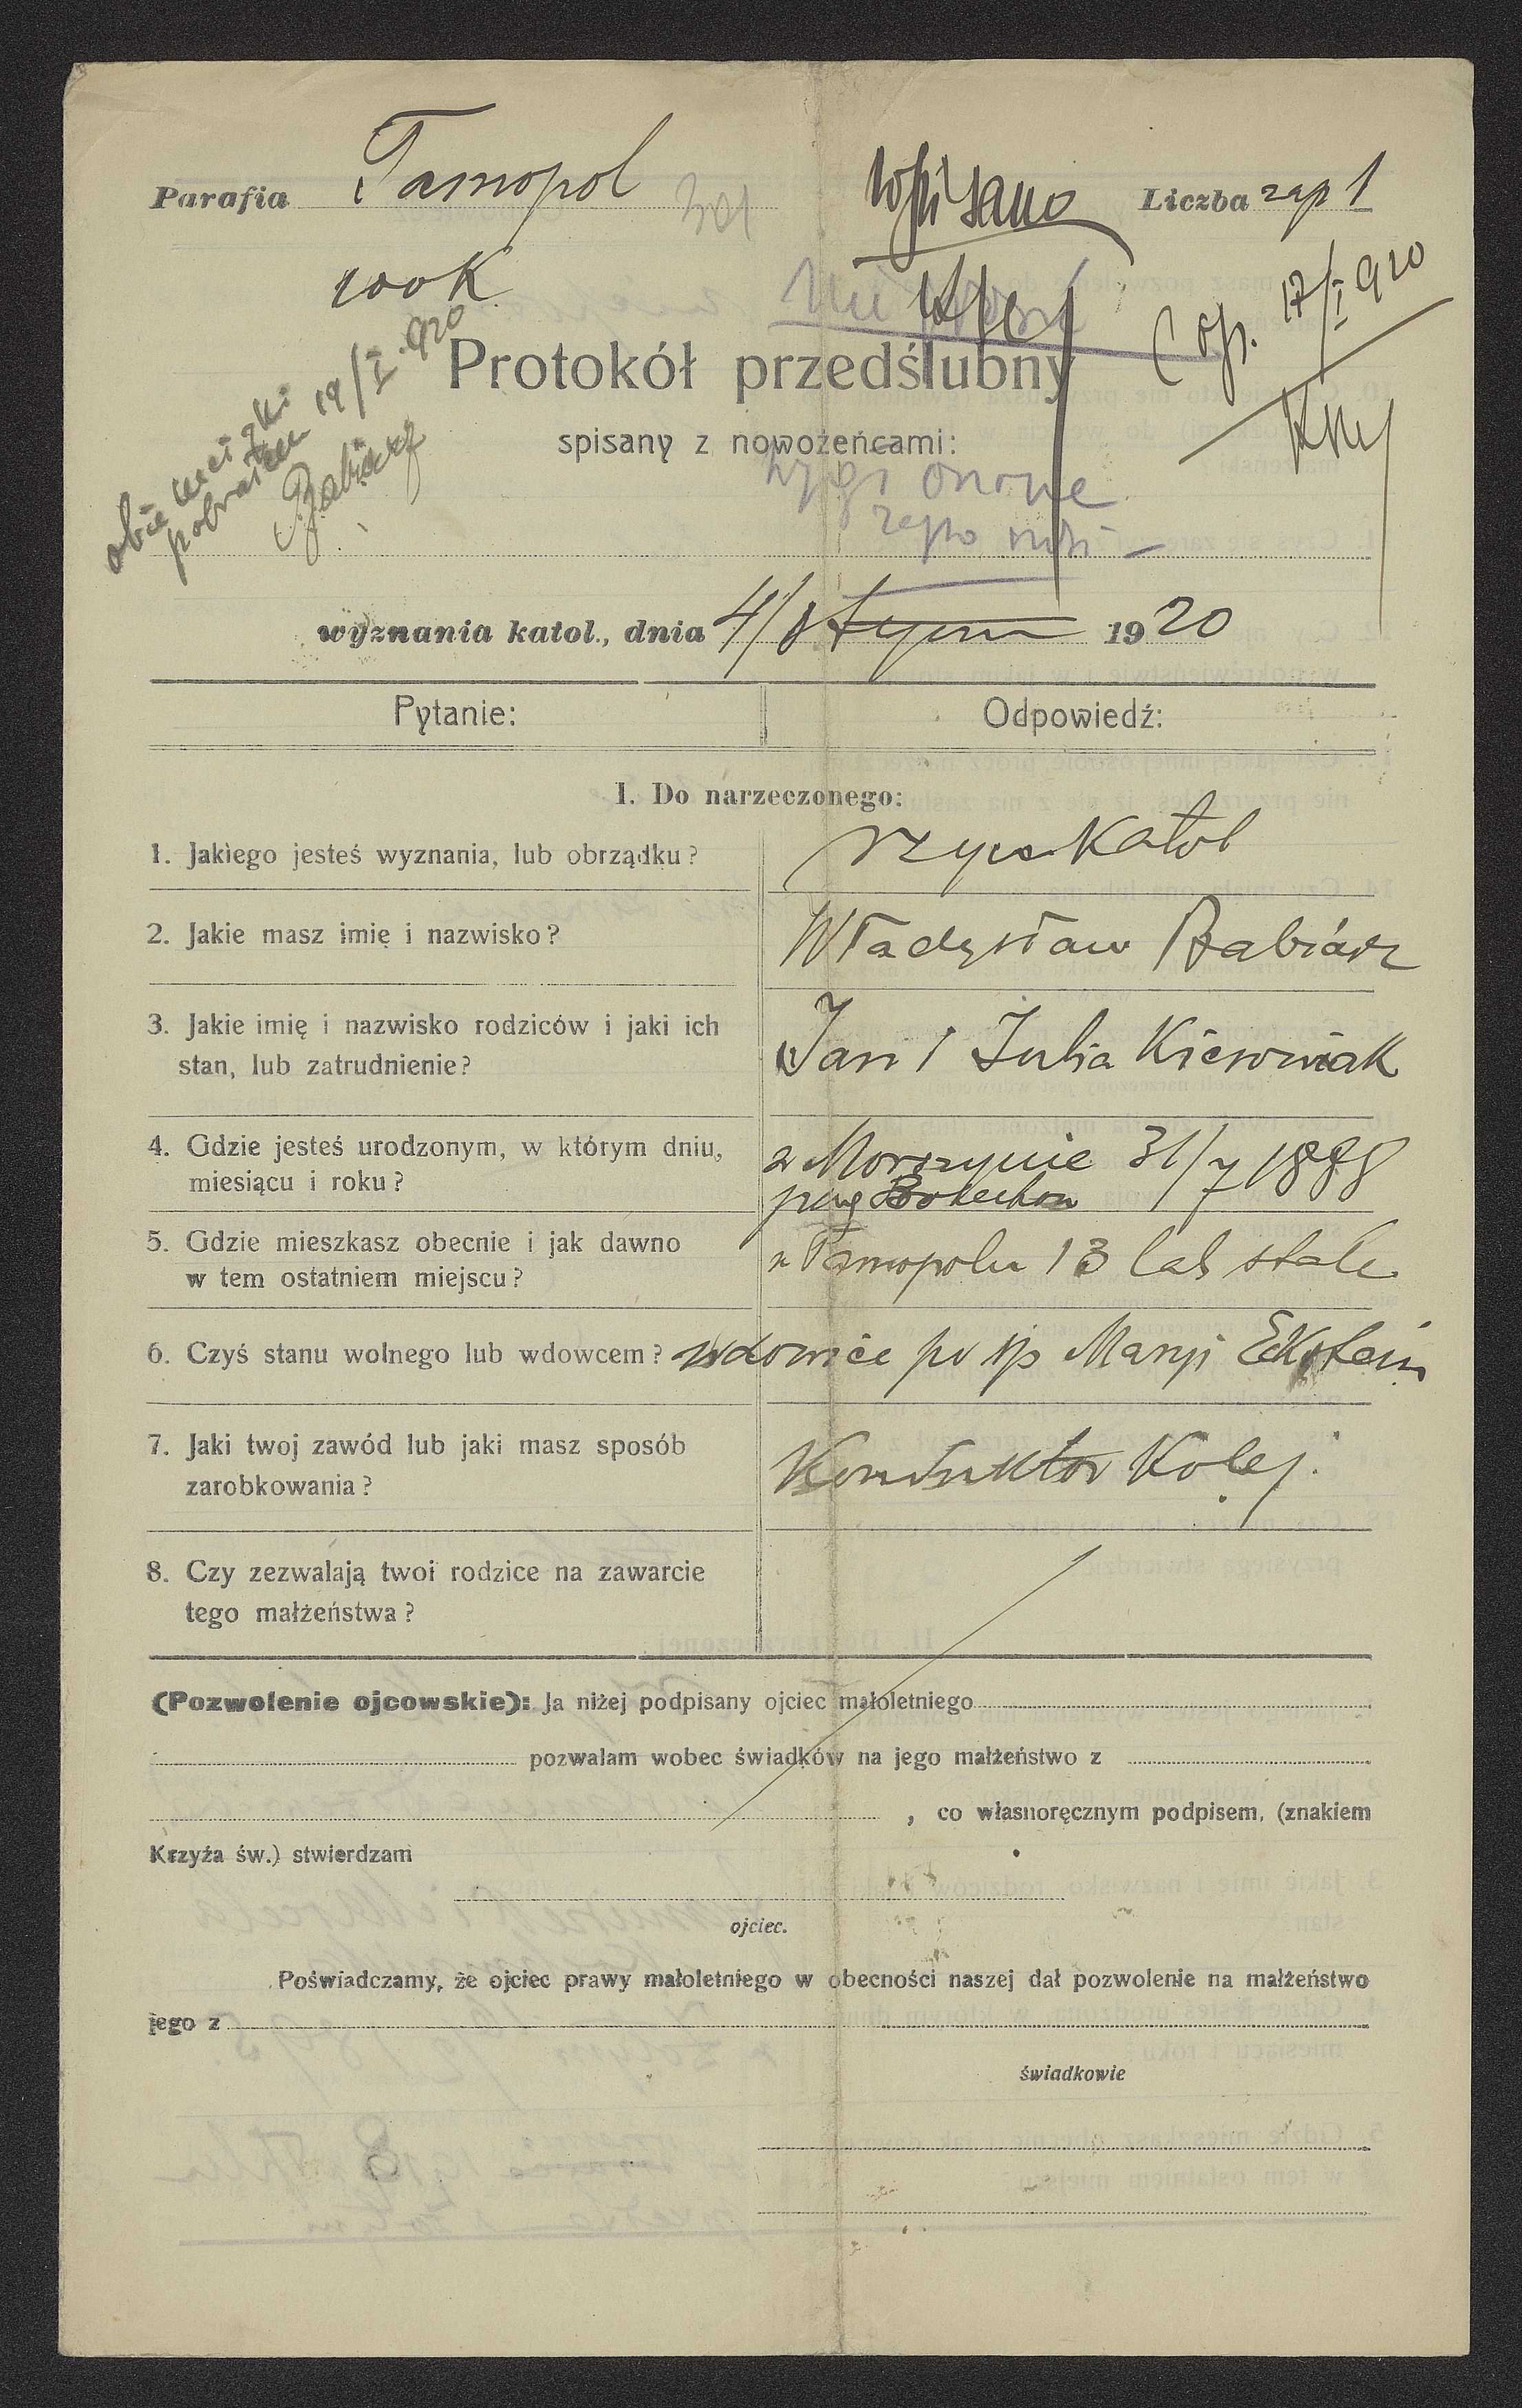 Parafia Tarnopol
Wpisano
Liczba zap 1
100 K
17/I 920
14/I. 920
Babiarz
Protokół przedślubny
spisany z nowożeńcami:
wyznania katol., dnia 4/ stycznia 1920
Pytanie: Odpowiedź:
I. Do narzeczonego:
1. Jakiego jesteś wyznania, lub obrządku? rzym. Katol
2. Jakie masz imię i nazwisko? Władysław Babiarz
3. Jakie imię i nazwisko rodziców i jaki ich
stan, lub zatrudnienie? Jan i Julia
4. Gdzie jesteś urodzonym, w którym dniu,
miesiącu i roku?
w Morszynie 31/7 1888
5. Gdzie mieszkasz obecnie i jak dawno
w tem ostatniem miejscu?
w Tarnopolu 13 lat stale
6. Czyś stanu wolnego lub wdowcem? wdowiec po śp Maryi Ekstein
7. Jaki twoj zawód lub jaki masz sposób
zarobkowania?
Konduktor Kolej.
8. Czy zezwalają twoi rodzice na zawarcie
tego małżeństwa?
(Pozwolenie ojcowskie): Ja niżej podpisany ojciec małoletniego
pozwalam wobec świadków na jego małżeństwo z
, co własnoręcznym podpisem, (znakiem
Krzyża św.) stwierdzam
ojciec.
Poświadczamy, że ojciec prawy małoletniego w obecności naszej dał pozwolenie na małżeństwo
jego z
świadkowie